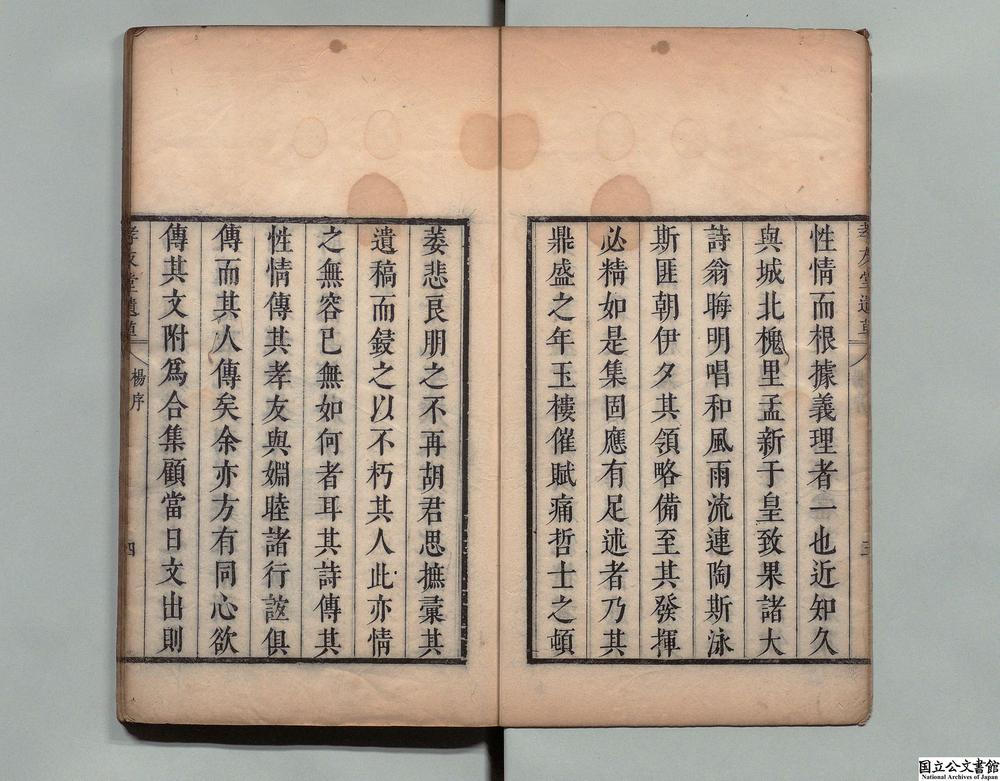 性情而根據義理者一也近知久
與城北槐里孟新于皇致果諸大
詩翁晦明唱和風雨流連陶斯泳
斯匪朝伊夕其領略備至其發揮
必精如是集固應有足述者乃其
鼎盛之年玉樓催賦痛哲士之頓
萎悲良朋之不再胡君思摭彙其
遺稿而鋟之以不朽其人此亦情
之無容已無如何者耳其詩傳其
性情傳其孝友與婣睦諸行誼俱
傳而其人傳矣余亦方有同心欲
傳其文附爲合集顧當日文出則
孝友堂遺草
楊序
四
国立公文書館
National Archives of Japan